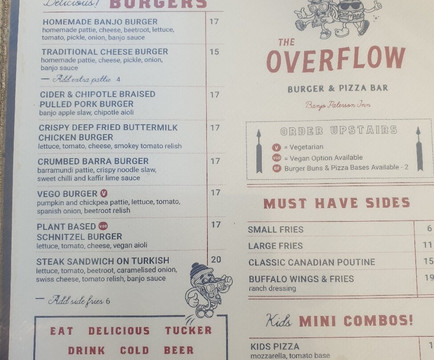 Delicious! BURGERS
HOMEMADE BANJO BURGER 17
homemade pattie, cheese, beetroot, lettuce,
tomato, pickle, onion, banjo sauce
TRADITIONAL CHEESE BURGER 15
homemade pattie, cheese, pickle, onion,
banjo sauce
— Add extra pattie 4
CIDER & CHIPOTLE BRAISED 17
PULLED PORK BURGER
banjo apple slaw, chipotle aioli
CRISPY DEEP FRIED BUTTERMILK 17
CHICKEN BURGER
lettuce, tomato, cheese, smokey tomato relish
CRUMBED BARRA BURGER 17
barramundi pattie, crispy noodle slaw,
sweet chilli and kaffir lime sauce
VEGO BURGER V 17
pumpkin and chickpea pattie, lettuce, tomato,
spanish onion, beetroot relish
PLANT BASED 17
SCHNITZEL BURGER
lettuce, tomato, cheese, vegan aioli
STEAK SANDWICH ON TURKISH 20
lettuce, tomato, beetroot, caramelised onion,
swiss cheese, tomato relish, banjo sauce
— Add side fries 6
EAT DELICIOUS TUCKER
DRINK COLD BEER
THE
OVERFLOW
BURGER & PIZZA BAR
Banjo Paterson Inn
ORDER UPSTAIRS
V = Vegetarian
= Vegan Option Available
Burger Buns & Pizza Bases Available - 2
MUST HAVE SIDES
SMALL FRIES 6
LARGE FRIES 11
CLASSIC CANADIAN POUTINE 15
BUFFALO WINGS & FRIES 19
ranch dressing
Kids MINI COMBOS!
KIDS PIZZA
mozzarella, tomato base